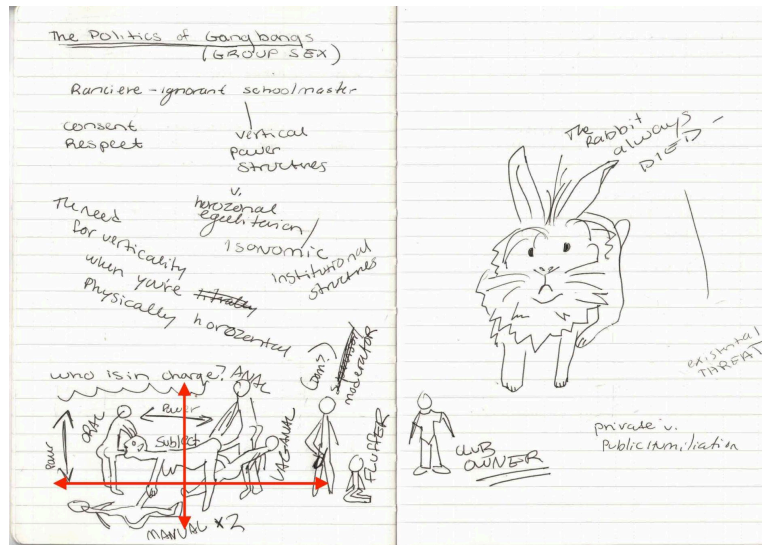 The Politics of Gangbangs
(GROUP SEX)
Ranciere - ignorant schoolmaster
consent
Respect
vertical
power
structures
v.
horozonal
egalitarian
isonomic
institutional
structures
The need
for verticality
when you're
physically horozontal
who is in charge?
ANAL
(Tam?)
moderator
Power
Power
ORAL
Subject
VAGANAL
FLUFFER
MANUAL x2
The
Rabbit
always
DIED -
existential
THREAT
CLUB
OWNER
private v.
Public Humiliation